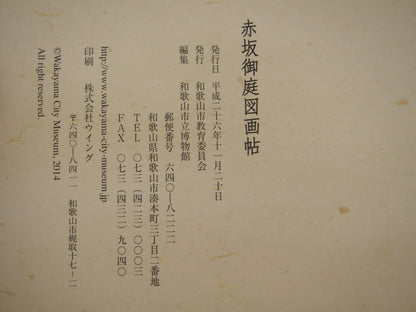 赤坂御庭図画帖
発行日 平成二十六年十一月二十日
発行 和歌山市教育委員会
編集 和歌山市立博物館
郵便番号 六四〇―八二二二
和歌山県和歌山市湊本町三丁目二番地
TEL 〇七三(四二三)〇〇〇三
FAX 〇七三(四三二)九〇四〇
http://www.wakayama-city-museum.jp
印刷 株式会社ウイング
〒六四〇―八四一一 和歌山市梶取十七―二
©Wakayama City Museum, 2014
All right reserved.